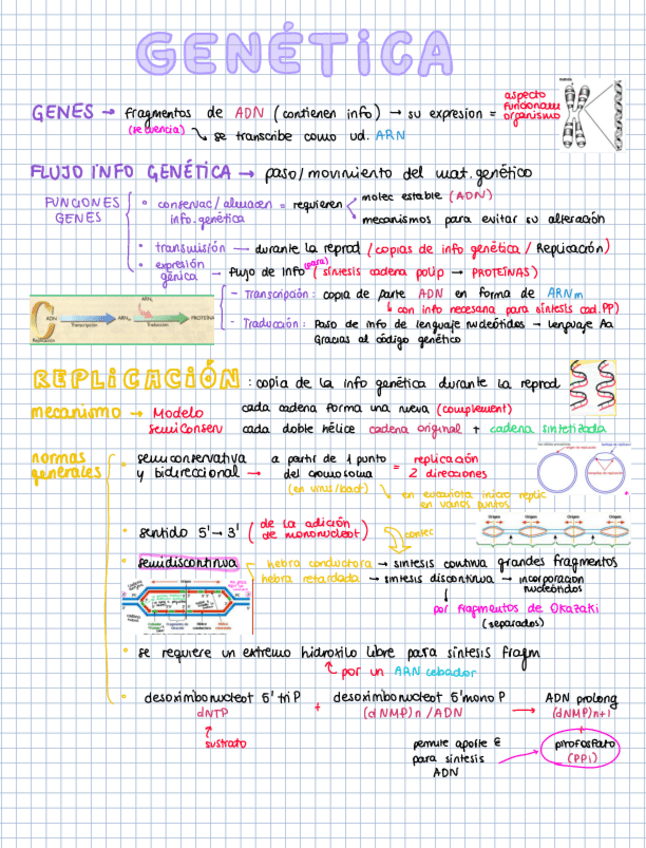 GENÉTICA
GENES → fragmentos de ADN (contienen info) → su expresion = aspecto funcionam organismo
(secuencia) ↳ se transcribe como ud. ARN
FLUJO INFO GENÉTICA → paso/movimiento del mat. genético
FUNCIONES GENES
• conservac/almacen info. genética = requieren
molec estable (ADN)
mecanismos para evitar su alteración
• transmisión — durante la reprod (copias de info genética / Replicación)
• expresión génica → flujo de info (para) (síntesis cadena polip → PROTEÍNAS)
- Transcripción: copia de parte ADN en forma de ARNm
↳ con info necesaria para síntesis cad. PP)
- Traducción: Paso de info de lenguaje nucleótidos → lenguaje Aa
Gracias al código genético
ADN
Transcripción
ARNm
ARNt
Traducción
PROTEÍNA
Replicación
REPLICACIÓN: copia de la info genética durante la reprod
mecanismo → Modelo semiconserv
cada cadena forma una nueva (complement)
cada doble hélice cadena original + cadena sintetizada
normas generales
• semiconservativa y bidireccional →
a partir de 1 punto del cromosoma
(en virus/bact)
= replicación 2 direcciones
↳ en eucariota inicio replic en varios puntos
• sentido 5'→3' (de la adición de mononucleot)
Origen
Origen
Origen
• semidiscontinua
hebra conductora → síntesis continua grandes fragmentos
hebra retardada → síntesis discontinua → incorporación nucleótidos
↓
por fragmentos de Okazaki
(separados)
Origen
• se requiere un extremo hidroxilo libre para síntesis fragm
↳ por un ARN cebador
• desoxirribonucleot 5' tri P + desoxirribonucleot 5' mono P → ADN prolong
dNTP (dNMP)n /ADN (dNMP)n+1
↑
sustrato
+
permite aporte E para síntesis ADN
pirofosfato (PPi)